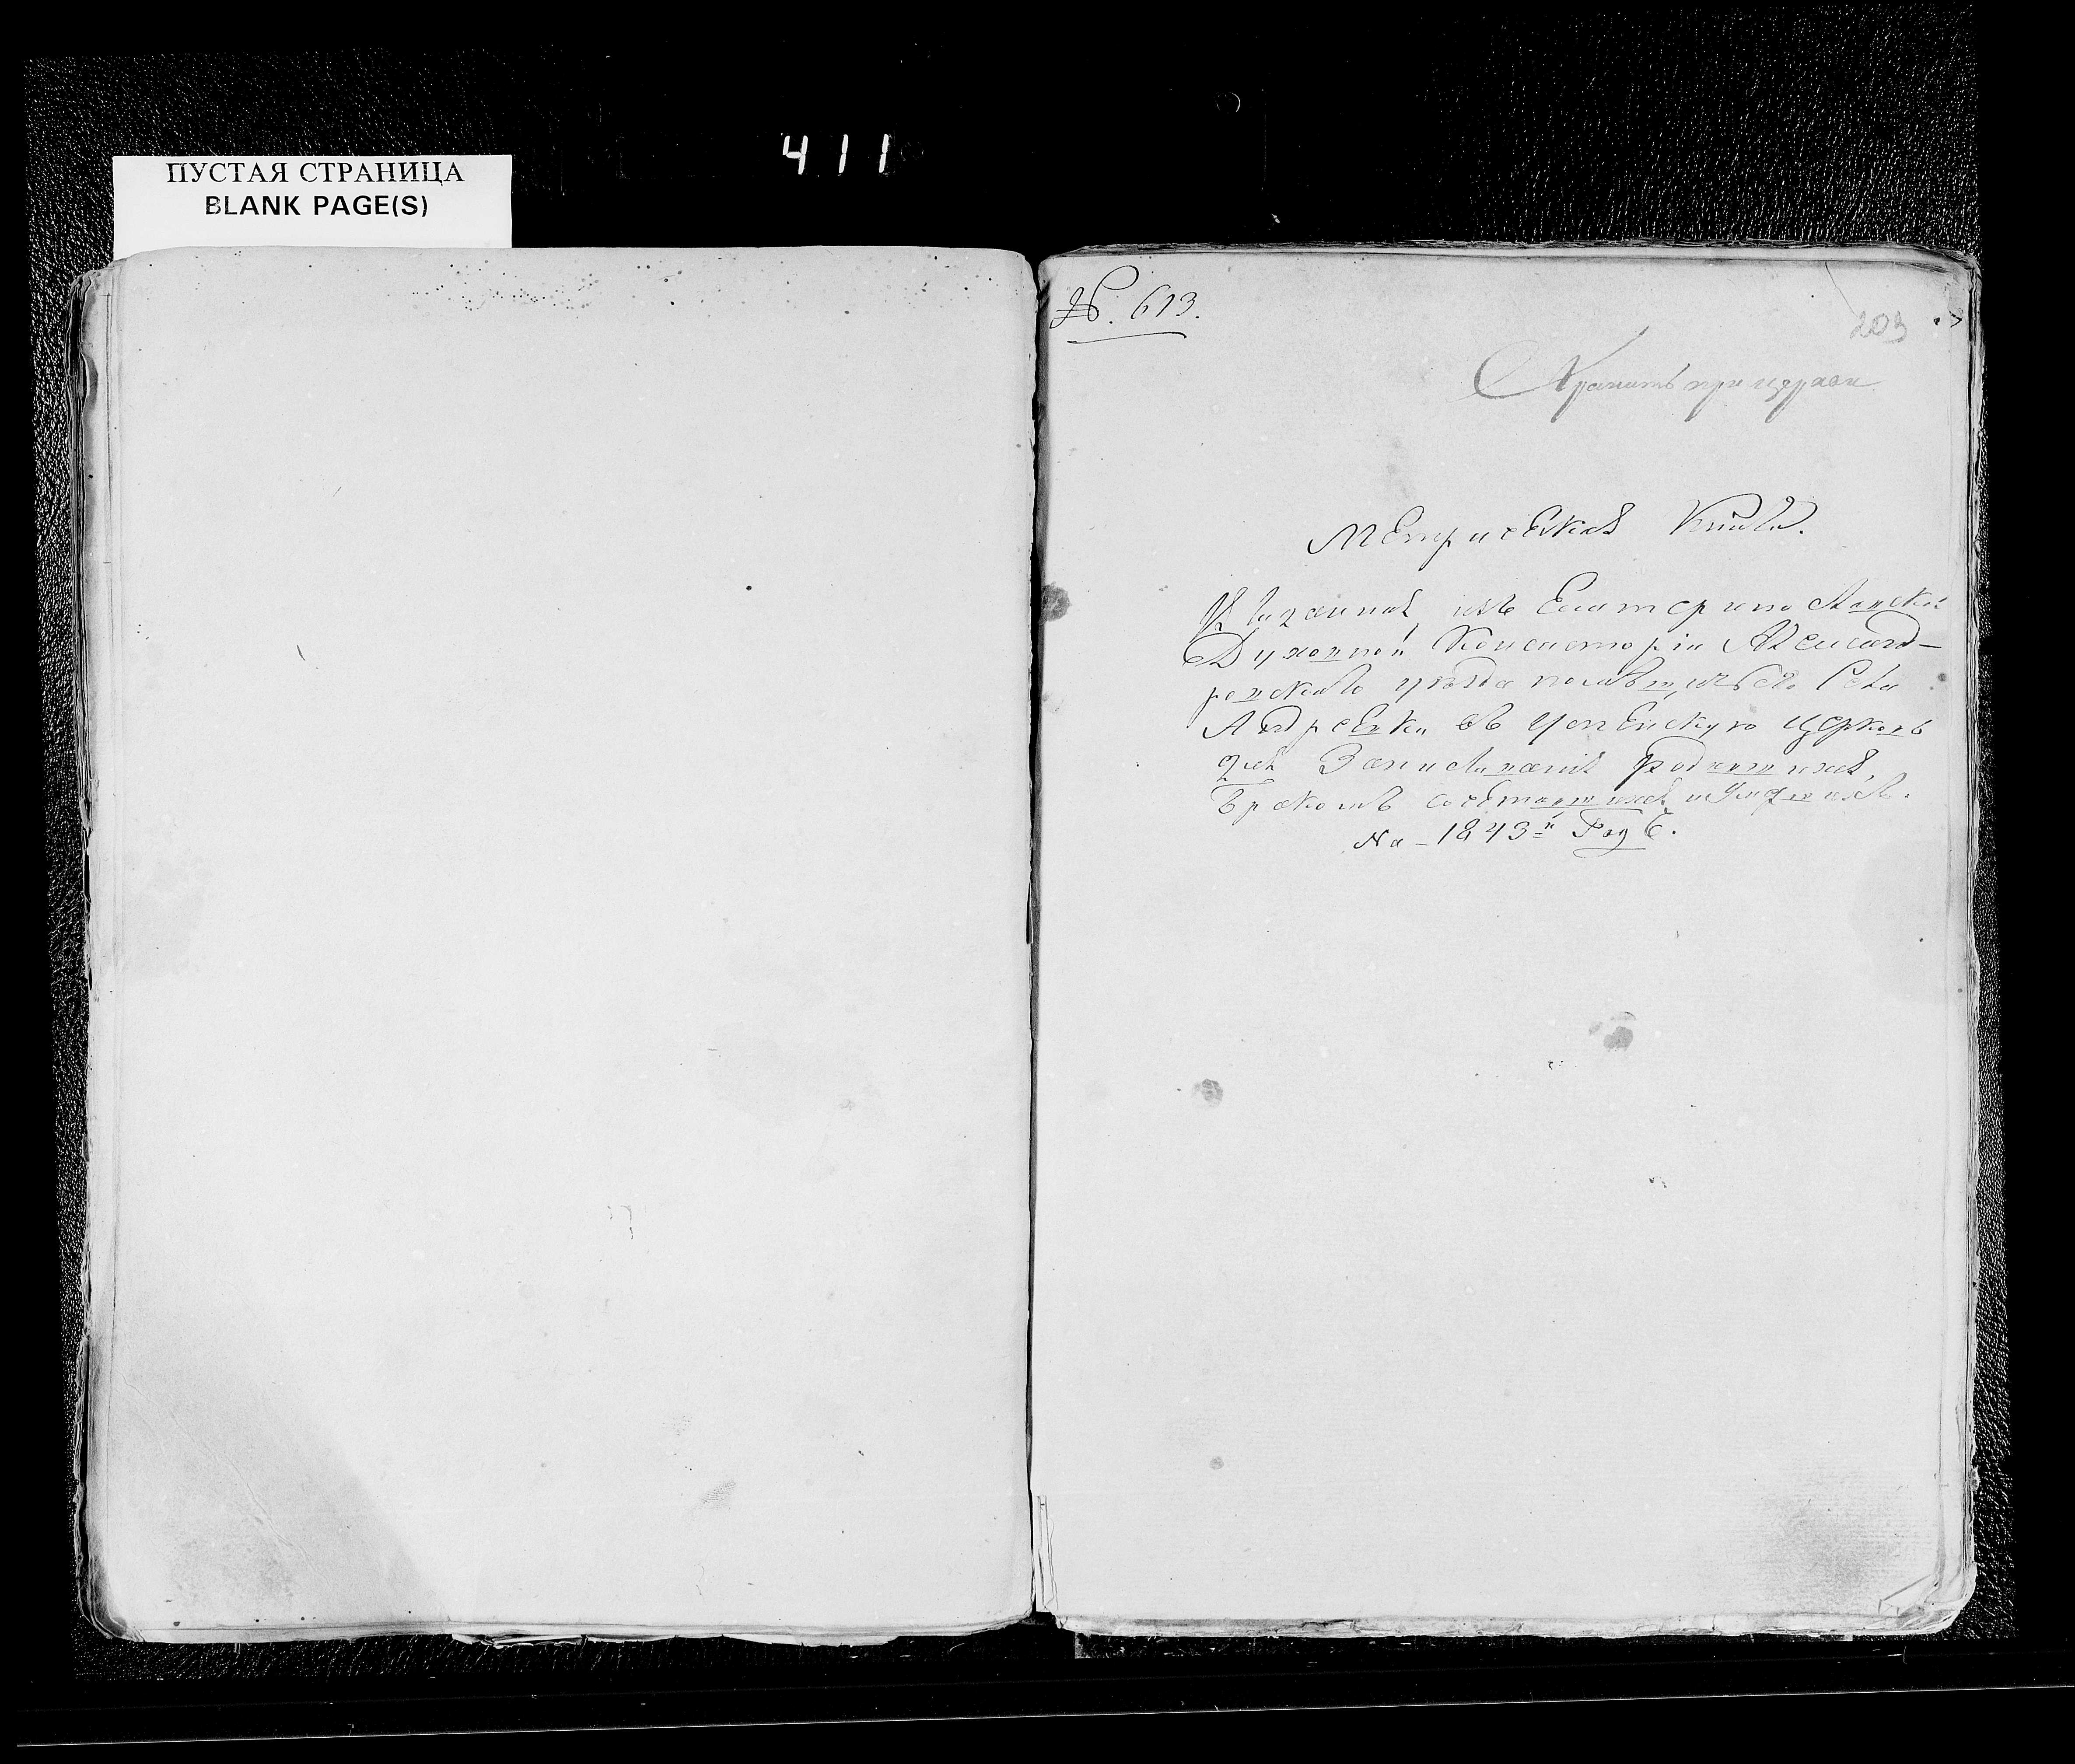 411
ПУСТАЯ СТРАНИЦА
BLANK PAGE(S)
№. 613.
203
Хранить при церкви
Метрическая Книга.
Данная изъ Екатеринославской
Духовной Консисторіи Александ-
ровскаго уѣзда села
Андреевки въ Успенскую церковь
для Записыванія Родившихся,
Бракомъ сочетавшихся и Умершихъ.
На - 1843й Годъ.